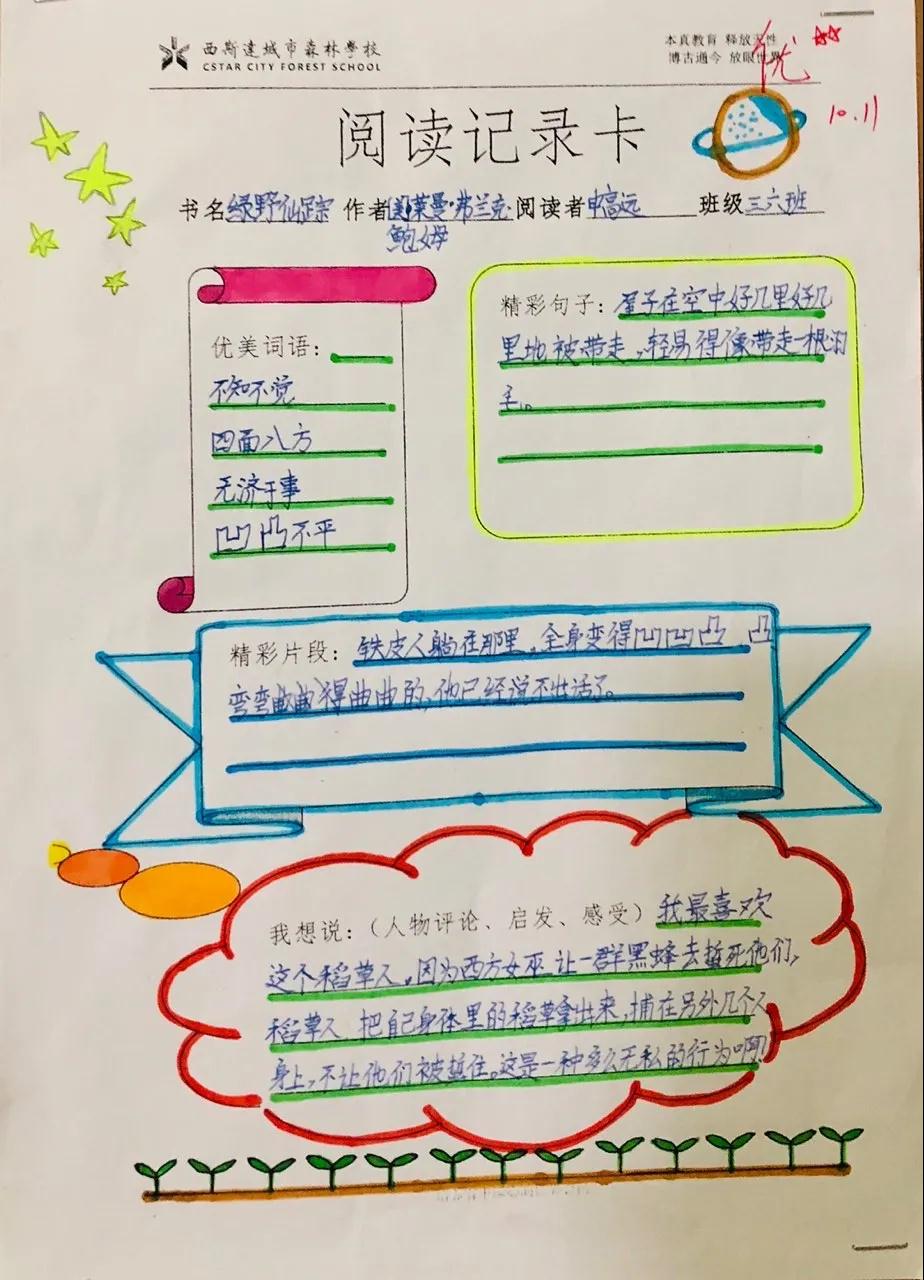 西斯達城市森林學校
CSTAR CITY FOREST SCHOOL
本真教育 释放天性
博古通今 放眼世界
优
10.11
阅读记录卡
书名绿野仙踪 作者美莱曼·弗兰克 阅读者申富远 班级三六班
鲍姆
优美词语:
不知不觉
四面八方
无济于事
凹凸不平
精彩句子:屋子在空中好几里好几
里地被带走,轻易得像带走一根羽
毛。
精彩片段:铁皮人躺在那里,全身变得凹凹凸凸
弯弯曲曲得曲曲的,他已经说不出话了。
我想说:(人物评论、启发、感受)我最喜欢
这个稻草人,因为西方女巫让一群黑蜂去蜇死他们,
稻草人把自己身体里的稻草拿出来,捕在另外几个人
身上,不让他们被蜇住。这是一种多么无私的行为啊!